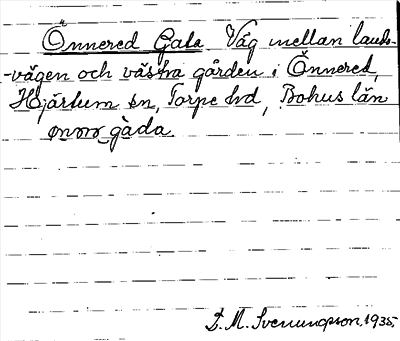 Önnered Gata Väg mellan lands-
-vägen och västra gården i Önnered,
Hjärtum sn, Torpe hd, Bohus län
gàda.
D. M. Svenungsson, 1935.